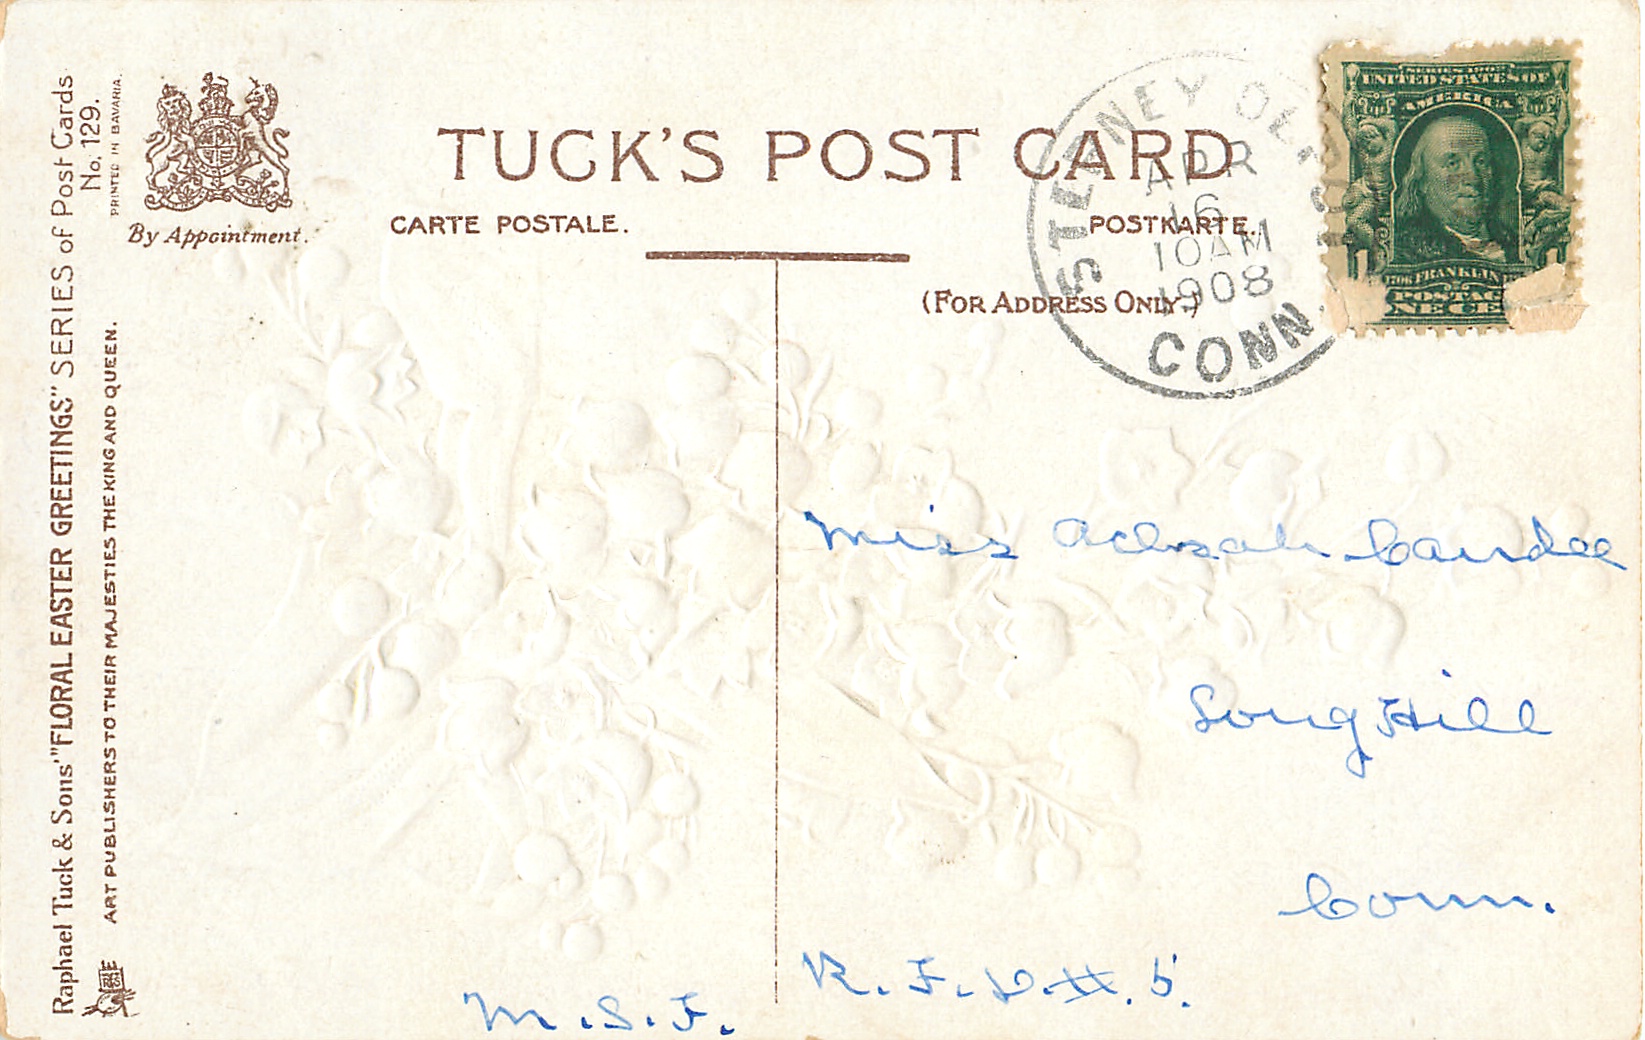 Raphael Tuck & Sons' "FLORAL EASTER GREETINGS" SERIES of Post Cards
No. 129.
PRINTED IN BAVARIA.
ART PUBLISHERS TO THEIR MAJESTIES THE KING AND QUEEN.
By Appointment.
TUCK'S POST CARD
CARTE POSTALE.
POSTKARTE.
(FOR ADDRESS ONLY.)
STEPNEY DEPOT
APR
16
10AM
1908
CONN.
SERIES 1902
UNITED STATES OF
AMERICA
1 1
FRANKLIN
POSTAG
NE CE
Miss Achsah Candee
Long Hill
Conn.
R.F.D.#.5.
M.S.F.